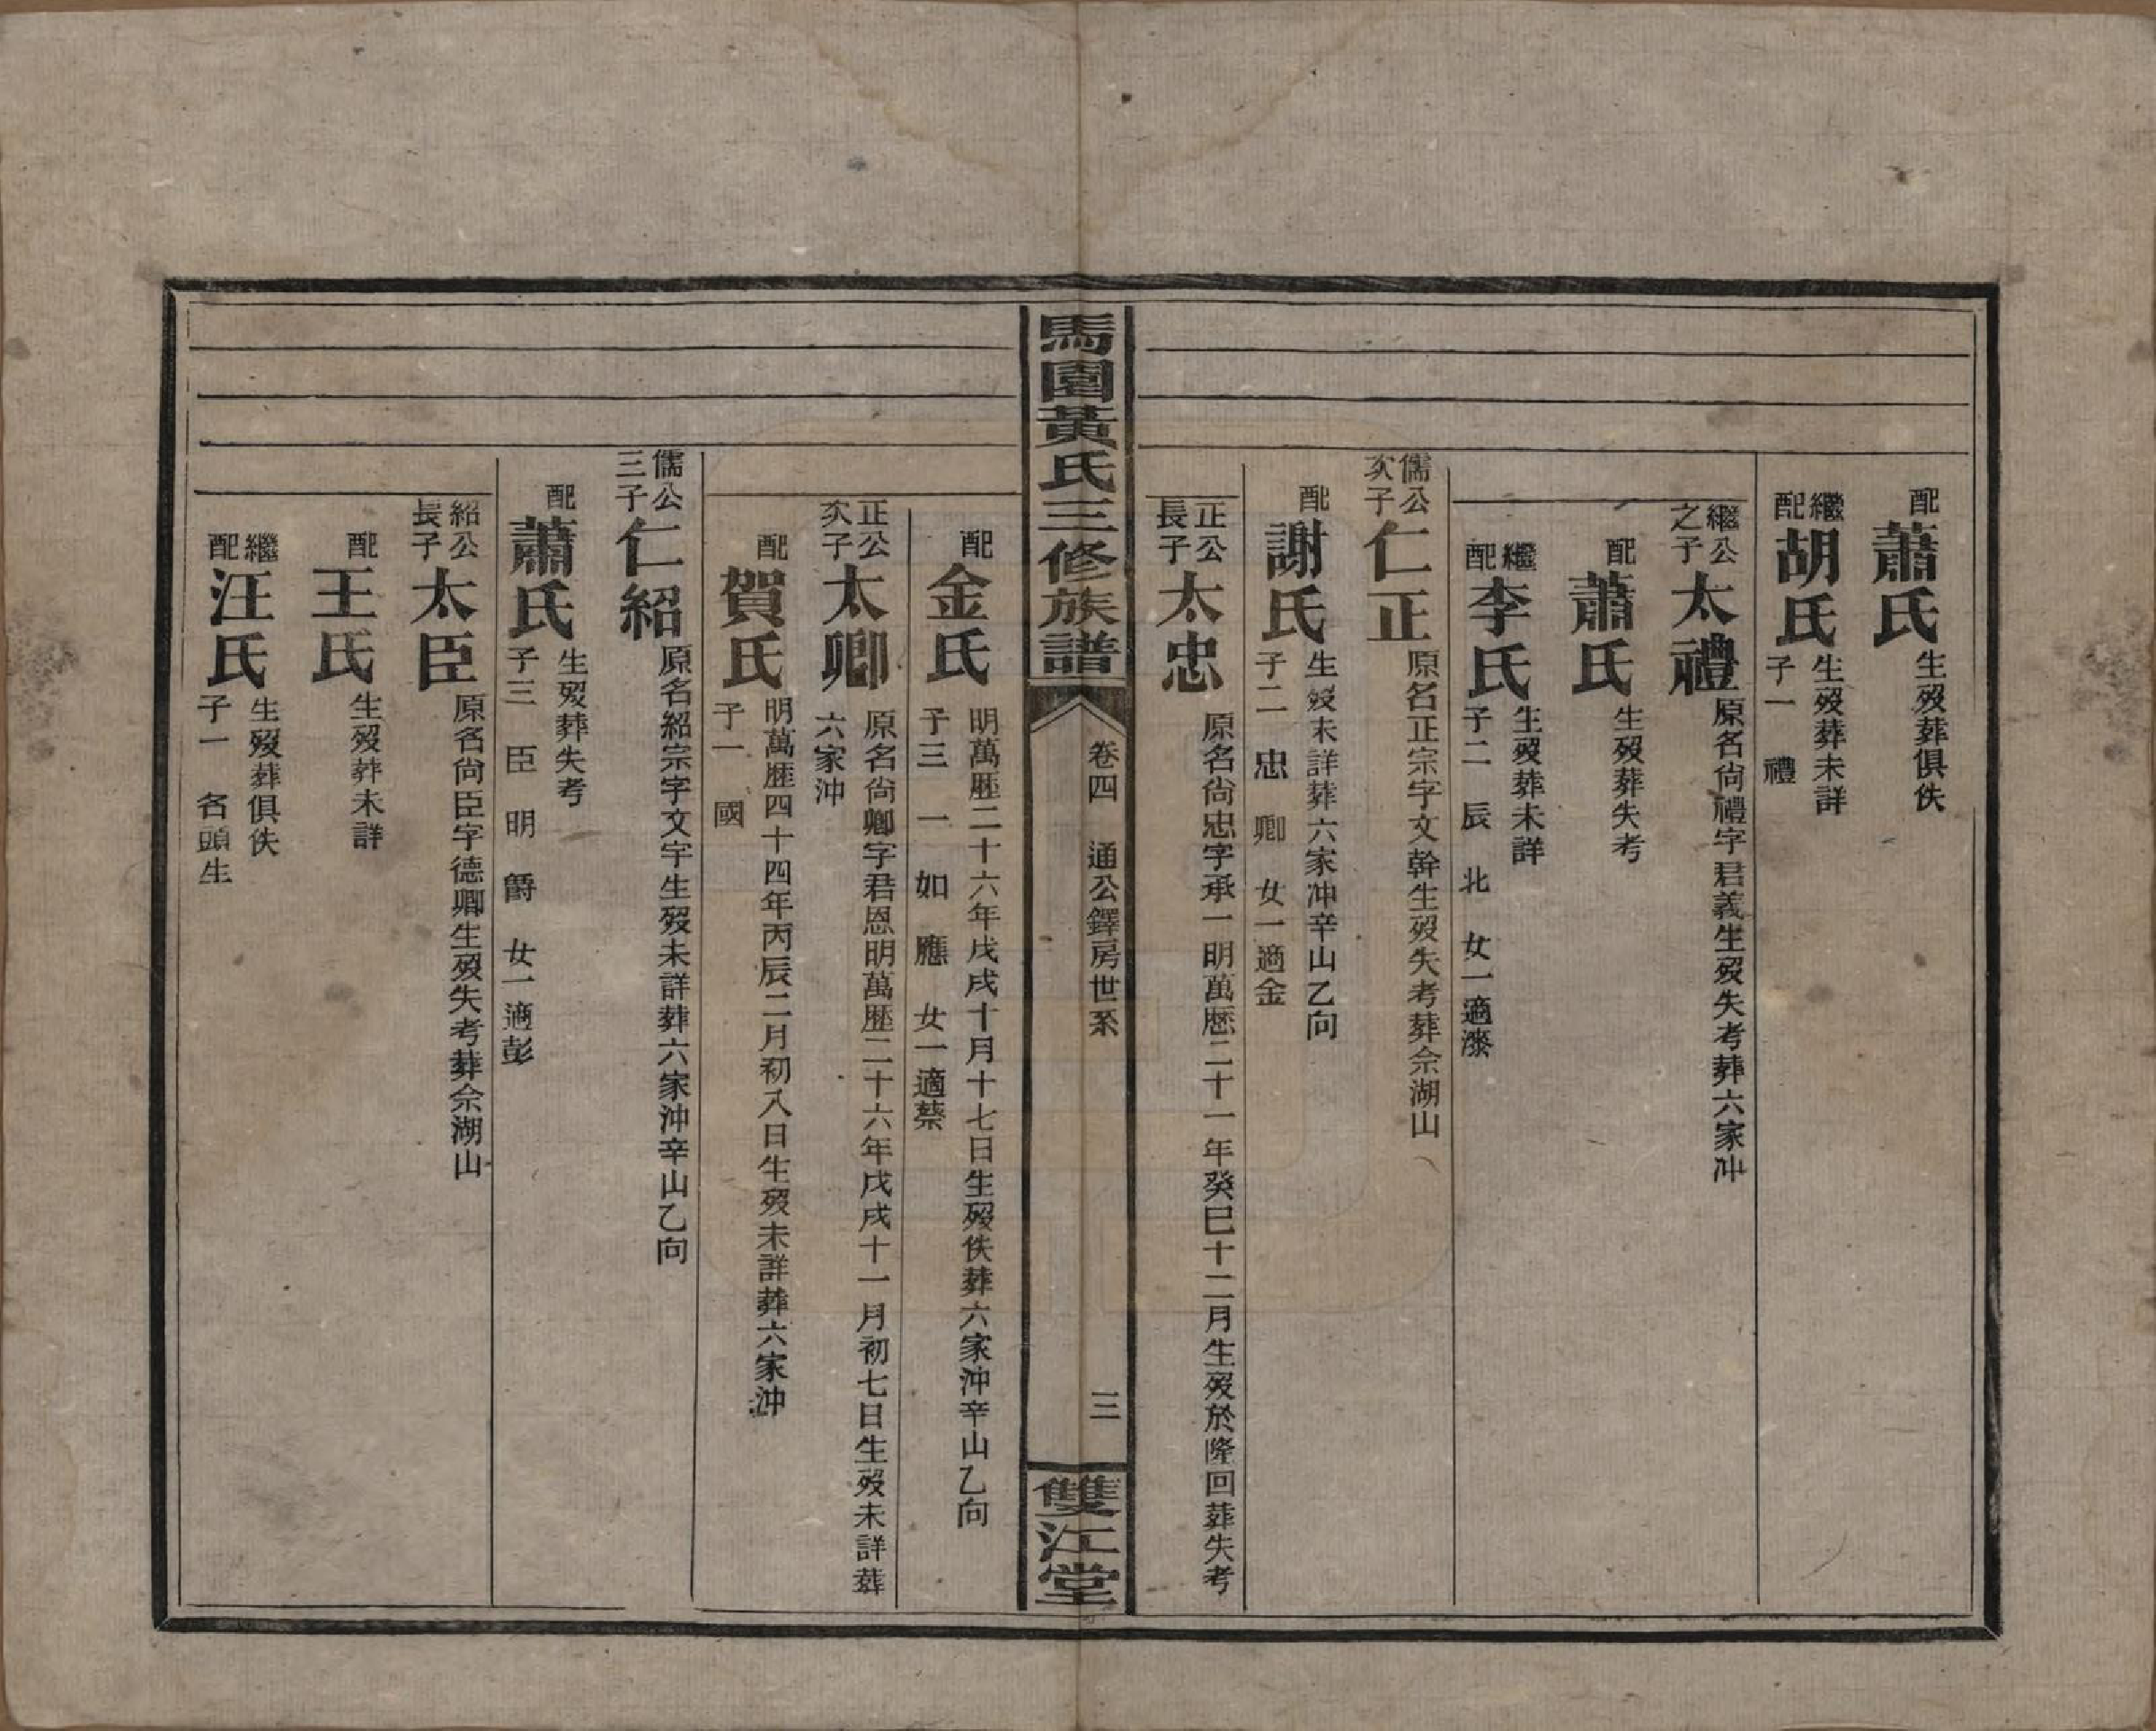 配蕭氏生歿葬俱佚
繼配胡氏生歿葬未詳
子一 禮
繼公之子太禮原名尙禮字君義生歿失考葬六家冲
配蕭氏生歿葬失考
繼配李氏生歿葬未詳
子二 辰 北 女一適漆
儒公次子仁正原名正宗字文幹生歿失考葬佘湖山
配謝氏生歿未詳葬六家冲辛山乙向
子二 忠 卿 女一適金
正公長子太忠原名尙忠字承一明萬歷二十一年癸巳十二月生歿於隆回葬失考
馬園黃氏三修族譜
卷四 通公鐸房世系
三
雙江堂
配金氏明萬歷二十六年戊戌十月十七日生歿佚葬六家冲辛山乙向
子三 一 如 應 女一適蔡
正公次子太卿原名尙卿字君恩明萬歷二十六年戊戌十一月初七日生歿未詳葬
六家冲
配賀氏明萬歷四十四年丙辰二月初八日生歿未詳葬六家冲
子一 國
儒公三子仁紹原名紹宗字文宇生歿未詳葬六家冲辛山乙向
配蕭氏生歿葬失考
子三 臣 明 爵 女一適彭
紹公長子太臣原名尙臣字德卿生歿失考葬佘湖山
配王氏生歿葬未詳
繼配汪氏生歿葬俱佚
子一 名頭生